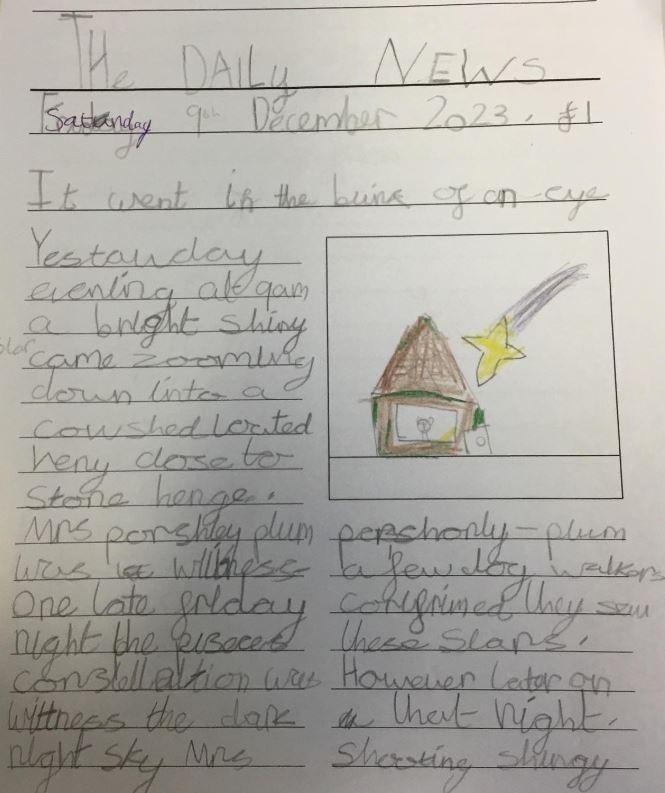 THe DAILy NEWS
Saturday 9th December 2023. £1
It went in the bunk of an eye
Yestauday
evening at 9am
a bright shiny
star
came zooming
down into a
cowshed located
very close to
Stone henge.
Mrs porshley plum
was witness
One late friday
night the
constellaltion was
wittness the dark
night sky Mrs
pershonly-plum
a few dog walkers
confrimed they saw
these stars.
However later on
that night.
Shooting shingy